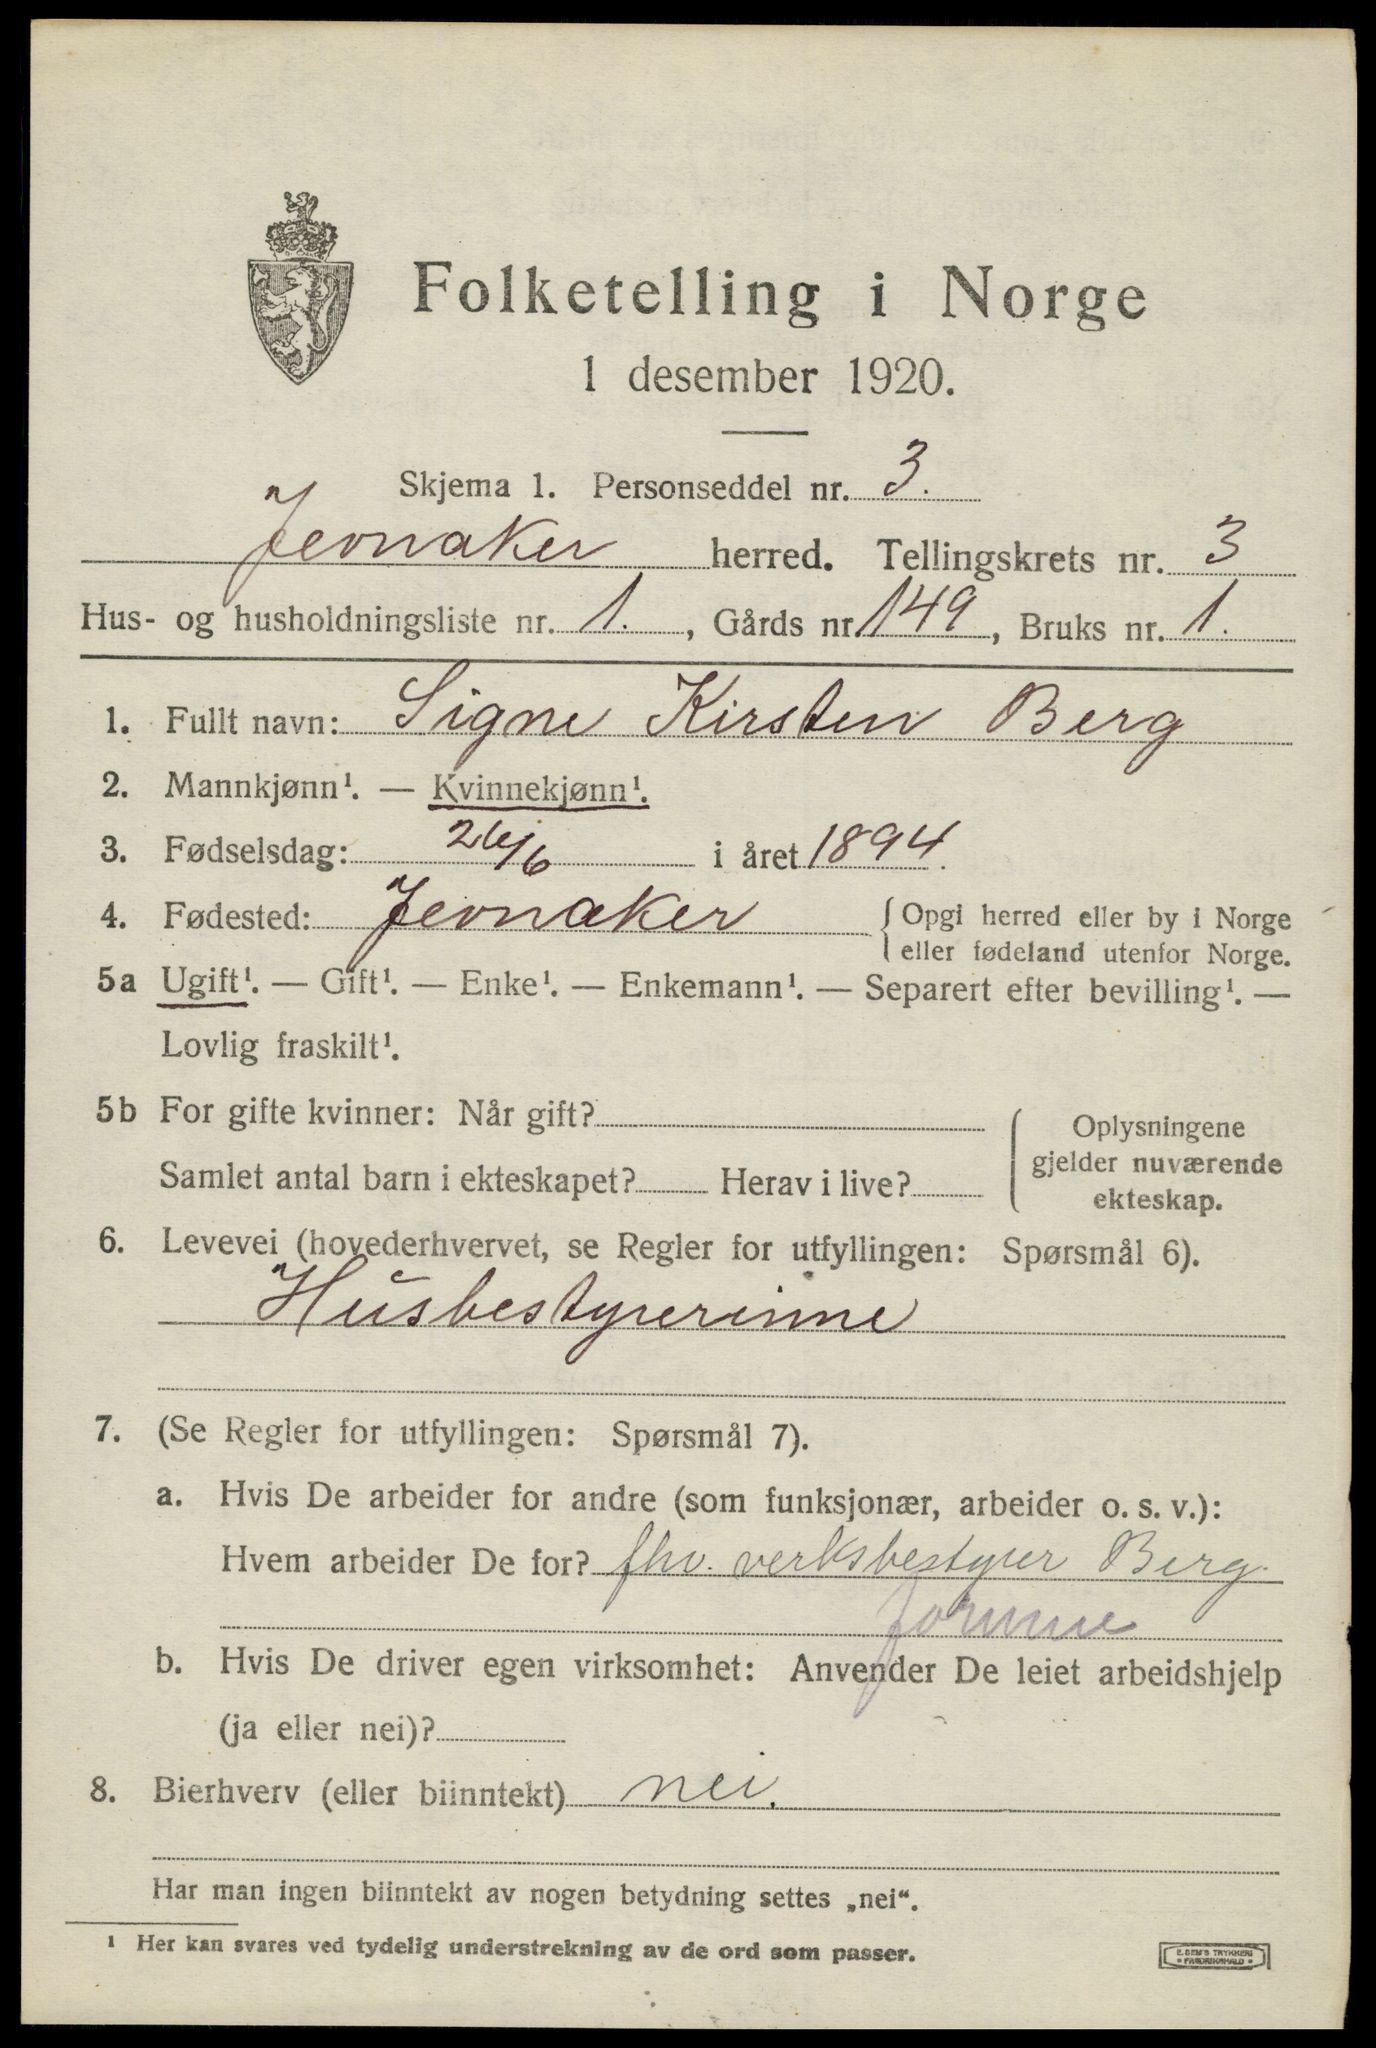 Folketelling i Norge
1 desember 1920.
Skjema 1. Personseddel nr. 3.
Jevnaker herred. Tellingskrets nr. 3
Hus- og husholdningsliste nr. 1., Gårds nr. 149, Bruks nr. 1.
1. Fullt navn: Signe Kirsten Berg
2. Mannkjønn¹. — Kvinnekjønn¹.
3. Fødselsdag: 26/6 i året 1894.
4. Fødested: Jevnaker { Opgi herred eller by i Norge
eller fødeland utenfor Norge.
5a Ugift¹. — Gift¹. — Enke¹. — Enkemann¹. — Separert efter bevilling¹. —
Lovlig fraskilt¹.
5b For gifte kvinner: Når gift?
Samlet antal barn i ekteskapet? Herav i live?
Oplysningene
gjelder nuværende
ekteskap.
6. Levevei (hovederhvervet, se Regler for utfyllingen: Spørsmål 6).
Husbestyrerinne
7. (Se Regler for utfyllingen: Spørsmål 7).
a. Hvis De arbeider for andre (som funksjonær, arbeider o. s. v.):
Hvem arbeider De for? fhv. verksbestyrer Berg.
b. Hvis De driver egen virksomhet: Anvender De leiet arbeidshjelp
(ja eller nei)?
8. Bierhverv (eller biinntekt) nei.
Har man ingen biinntekt av nogen betydning settes „nei“.
¹ Her kan svares ved tydelig understrekning av de ord som passer.
E. SEM'S TRYKKERI
FREDRIKSHALD